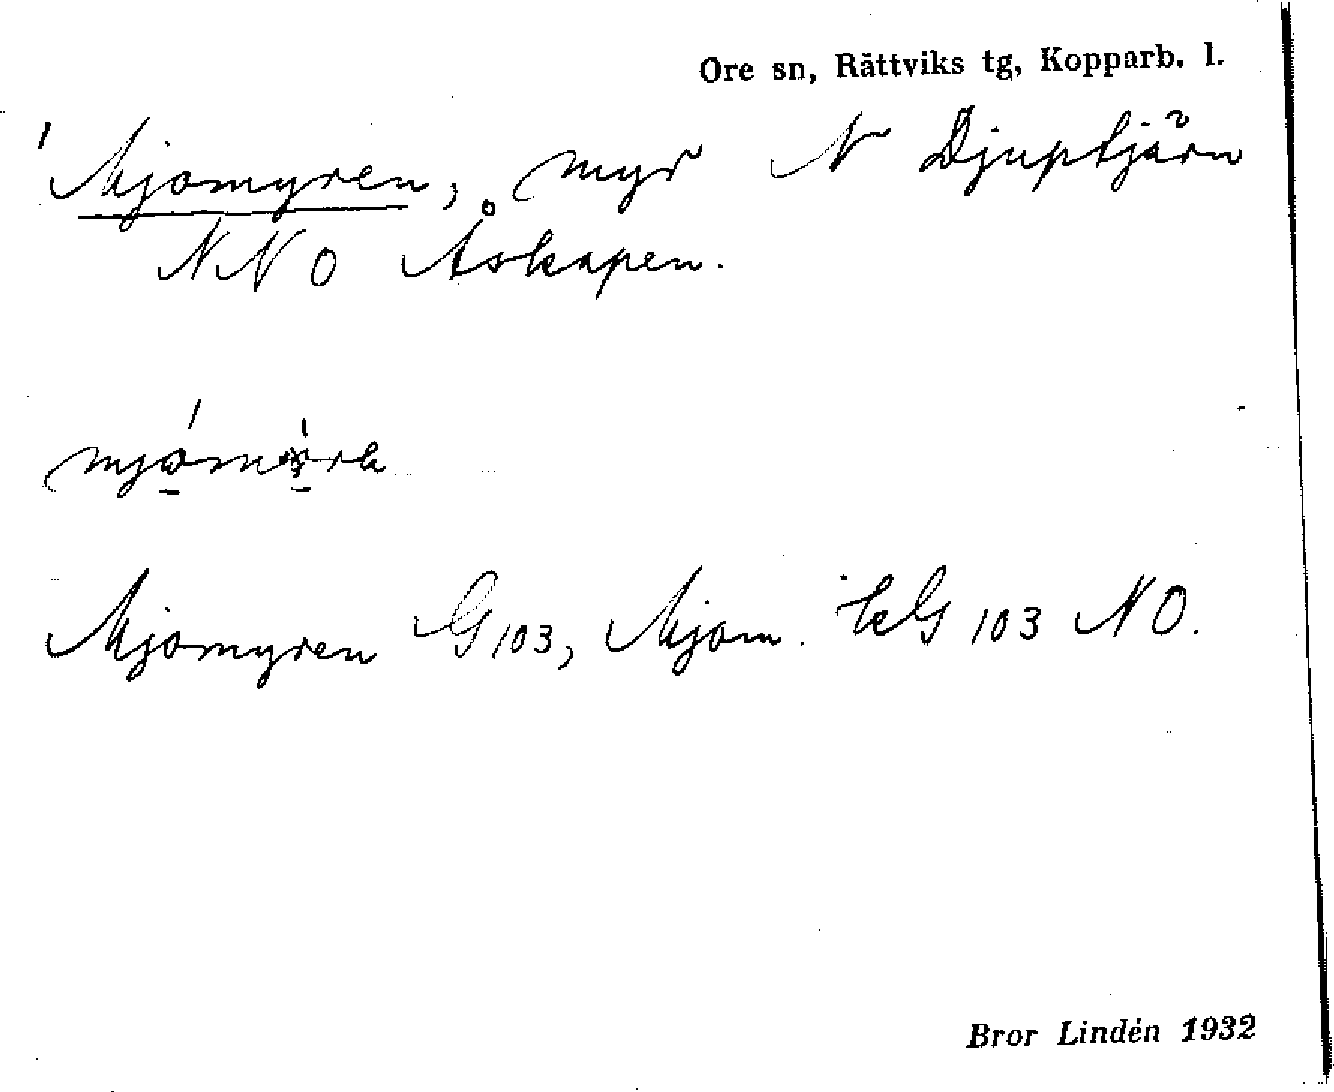 Ore sn, Rättviks tg, Kopparb. l.
Mjomyren, myr N Djuptjärn
NNO Åskapen.
Mjomyren G 103, Mjom. tG 103 NO.
Bror Lindén 1932